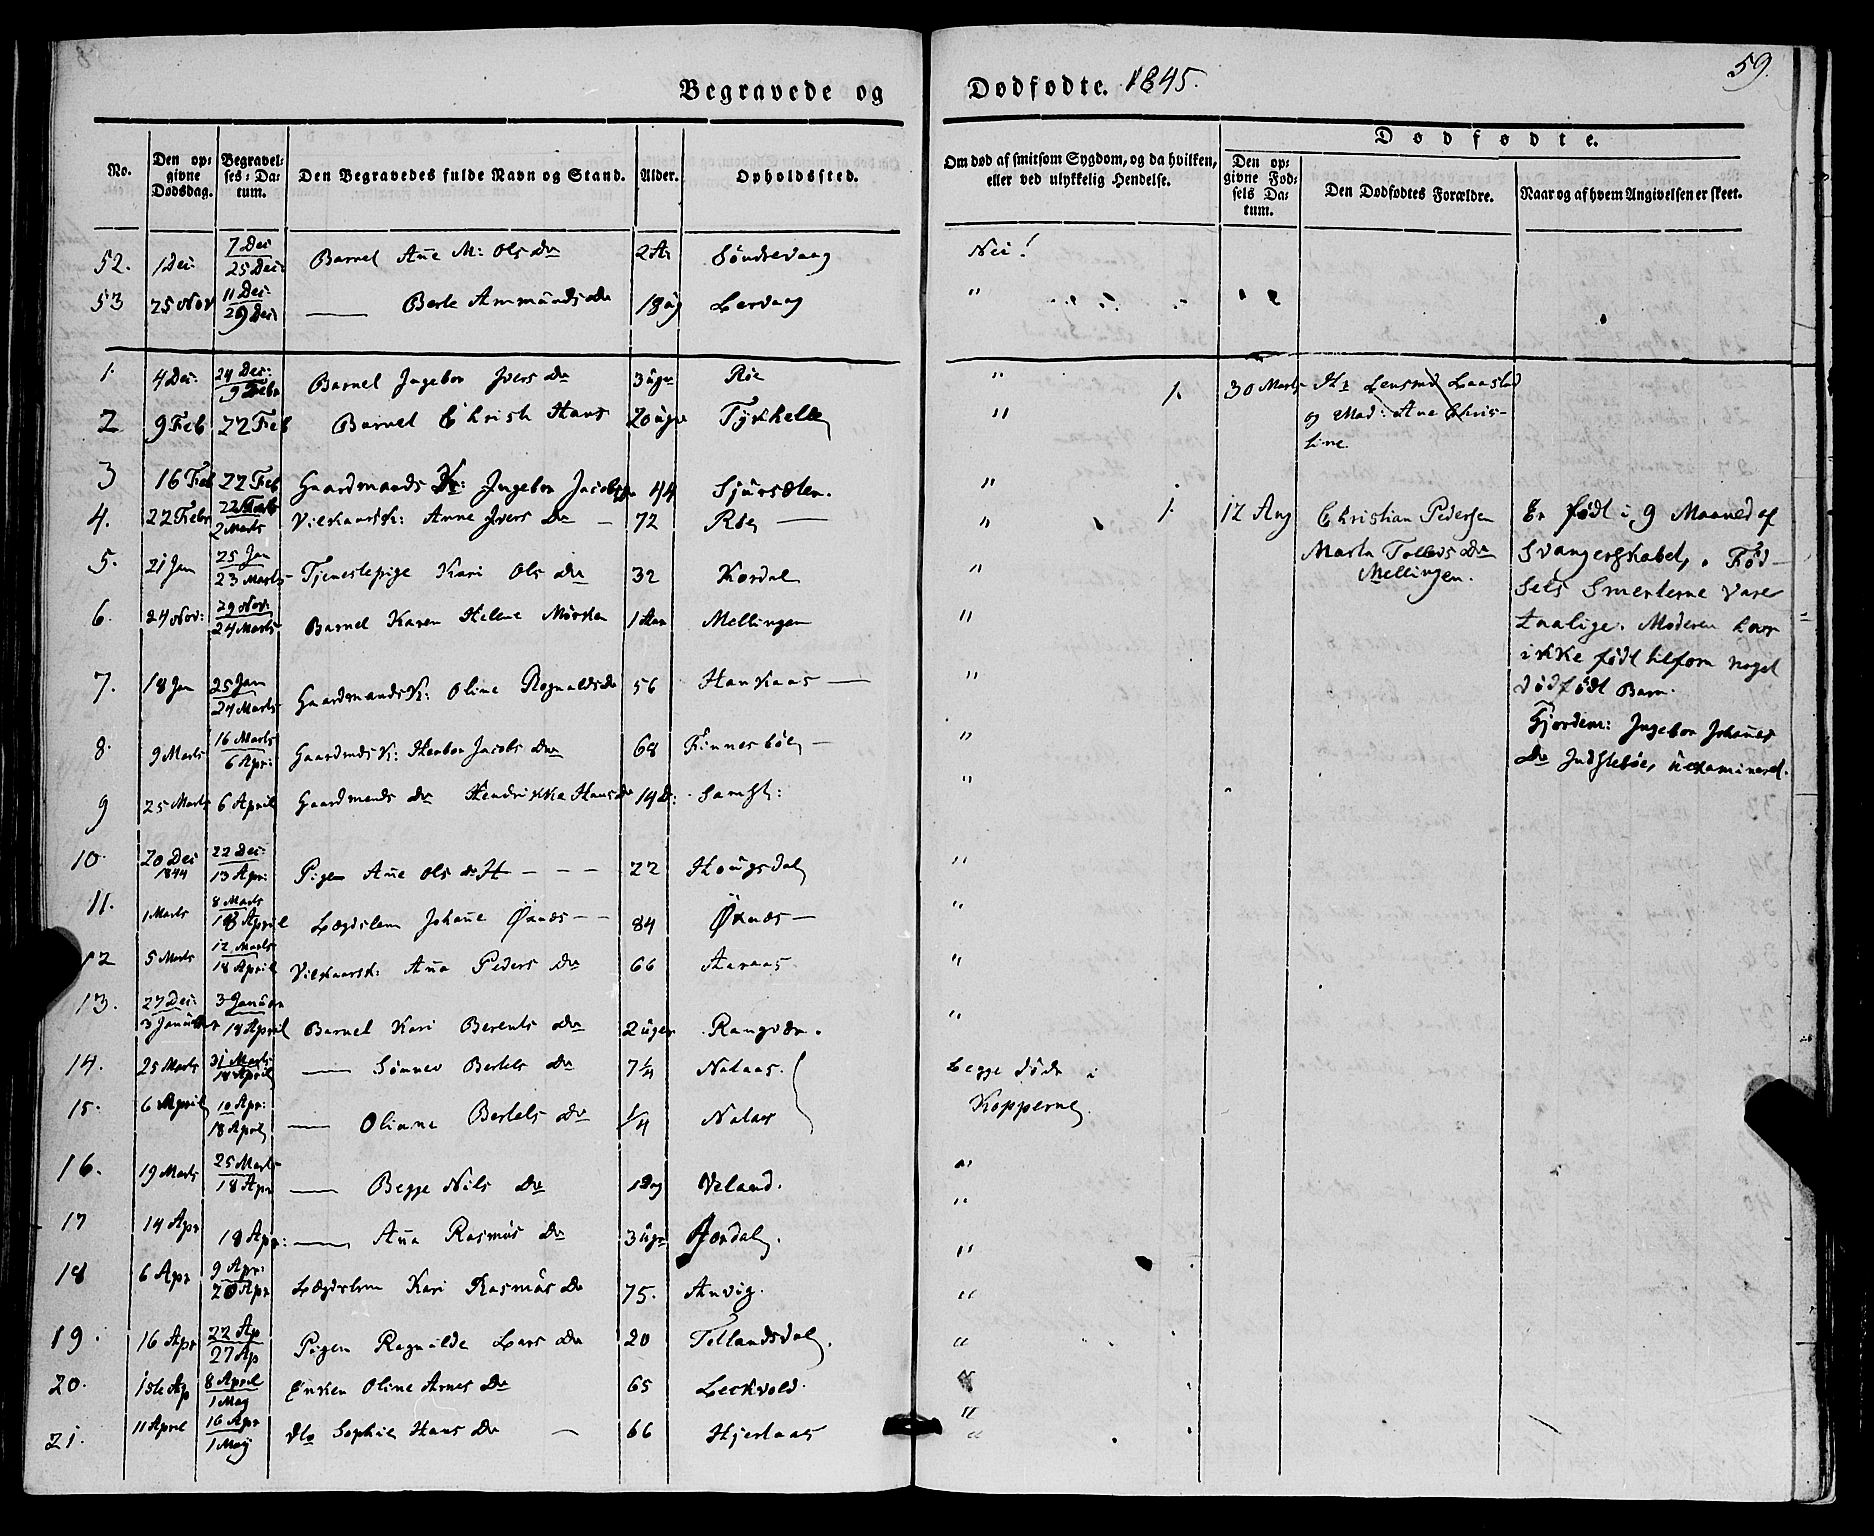 Begravede og Dødfødte. 1845. 59.
No. Den opgivne Dødsdag. Begravelses-Datum. Den Begravedes fulde Navn og Stand. Alder. Opholdssted. Om død af smitsom Sygdom, og da hvilken, eller ved ulykkelig Hendelse.
Dødfødte.
Den opgivne Fødsels Datum. Den Dødfødtes Forældre. Naar og af hvem Angivelsen er skeet.
52. 1 Dec: 7 Dec 25 Dec: Barnet Añe M: Ols Dr 2 Søndrevaag Nei!
53 25 Nov 11 Dec: 29 Dec: —— Berte Ammunds Dr 18 Lervaag "
1. 4 Dec: 24 Dec: 9 Febr Barnet Ingebor Ivers Dr 3 Uger Röe "
2 9 Feb 22 Feb Barnet Christi Hans 20 uger "
3 16 Feb 22 Feb Gaardmands K: Ingebor Jacobs Dr 44 "
4. 22 Febr 22 Feb 2 Marts Vilkaarsk: Anne Ivers Dr — 72 Röe —— "
5. 21 Jan 25 Jan 23 Marts Tjenestepige Kari Ols Dr 32 Kordal "
6. 24 Nov: 29 Nov: 24 Marts Barnet Karen Helene 1 Aar Mellingen "
7. 18 Jan 25 Jan 24 Marts Gaardmands K: Oline Rognalds Dr 56 Haukaas —— "
8. 9 Marts 16 Marts 6 Apr: Gaardmds K: Jacobs Dr 68 Finnesböe — "
9 25 Marts 6 April Gaardmands Dr Hendrikke Hans Dr 14 D: "
10. 20 Dec 1844 22 Dec: 13 Apr: Pigen Añe Ols Dr — — — 22 Hougsdal "
11. 1 Marts 8 Marts 18 April Lægdslem Johañe Öxnæs — — 84 Öxnæs — "
12 5 Marts 12 Marts 18 April Vilkaarsk: Aña Peders Dr 66 Aaraas "
13. 27 Dec: 3 Januar 3 Januar 18 April Barnet Kari Berents Dr 2 uger "
14. 25 Marts 31 Marts 18 April —— Sönnev Bertels Dr 7 1/4 Nataas. Begge døde i
15. 6 April 10 Apr: 18 April —— Oliane Bertels Dr 1/4 Nataas Kopperne.
16. 19 Marts 25 Marts 18 Apr —— Begge Nils Dr 1 Dag Veland. "
17 14 Apr 18 Apr: —— Aña Rasmus Dr 3 Uger "
18 6 Apr 9 Apr: 20 Apr Lægdslem Kari Rasmus Dr 75. Anvig. "
19. 16 Apr 22 Ap 27 Ap Pigen Ragnilde Lars Dr 20 "
20. 1ste Ap 8 April 1 May Enken Oline Arnes Dr 65 Leckvold "
21. 11 April 16 Apr 1 Maj Do Sophie Hans Dr — 66 Hjertaas "
1. 30 Marts Hr Lensmd Laastad
og Mad: Ane Chris-
tine
1. 12 Aug Christian Pedersen
Marta Tollevs Dr
Mellingen.
Er født i 9 Maaned af
Svangerskabet, Fød-
sels Smerterne vare
taalige. Moderen har
ikke født tilforn noget
dødfødt Barn.
Gjordem: Ingebor Johañes
Dr Indslebøe, uexamineret.